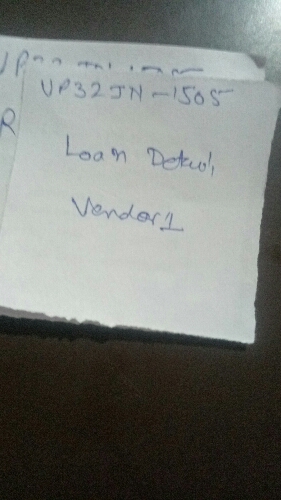 UP32JN-1505
Loan Detail,
Vendor1